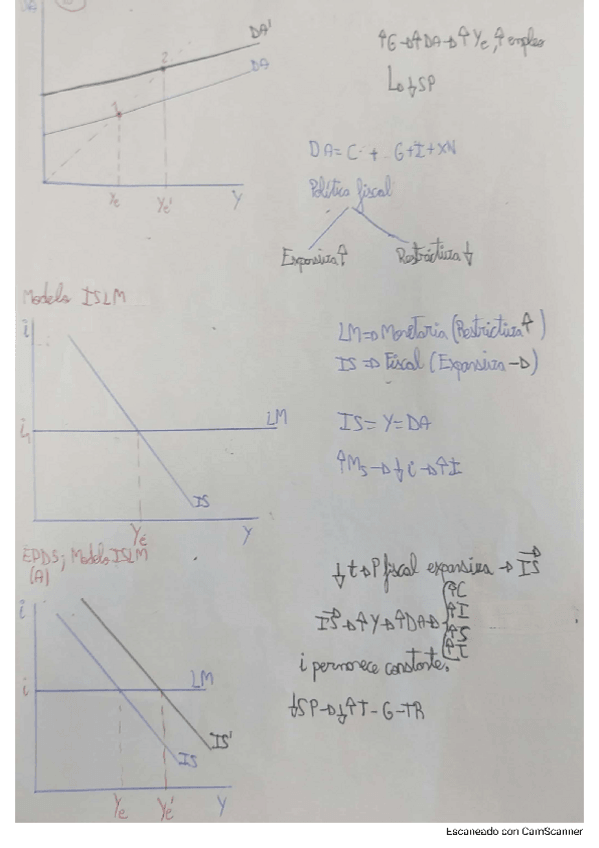 DA'
DA
2
1
Ye Ye' Y
↑G → ↑DA → ↑Ye, ↑empleo
↳ ↓SP
DA = C + G + I + XN
Política fiscal
Expansiva ↑ Restrictiva ↓
Modelo ISLM
i
i₁
LM
IS
Ye Y
LM ⇒ Monetaria (Restrictiva ↑)
IS ⇒ Fiscal (Expansiva →)
IS = Y = DA
↑Ms → ↓i → ↑I
EPD5; Modelo ISLM
(A)
i
i
LM
IS'
IS
Ye Ye' Y
↓t → P fiscal expansiva → IS
IS → ↑Y → ↑DA →
↑C
↑I
↑S
↑T
i permanece constante.
↓SP → ↓↑T - G - TR
Escaneado con CamScanner